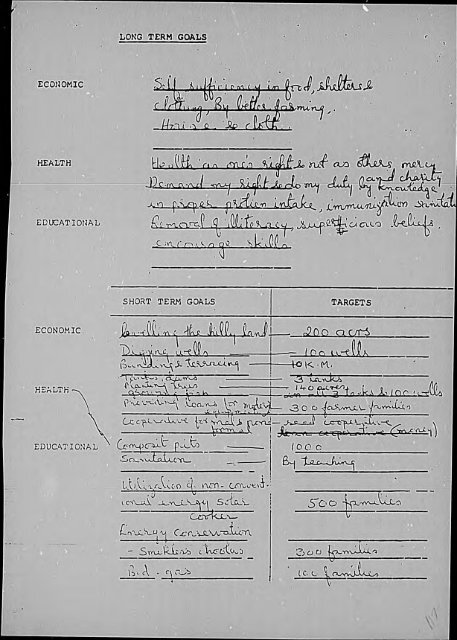 LONG TERM GOALS
ECONOMIC Self sufficiency in food, shelter &
clothing, By better farming,
House & cloth
HEALTH Health as one's right & not as others mercy
and charity
Demand my right & do my duty by knowledge
in proper protien intake, immunization
EDUCATIONAL Removal of illiteracy, superficious beliefs,
encourage skills
SHORT TERM GOALS TARGETS
ECONOMIC levelling the hilly land 200 acrs
Digging wells 100 wells
Bunding & terracing 10 K.M.
dams 3 tanks
Planting trees 140 acres
3 tanks & 100 wells
HEALTH Providing loans for 300 farmer families
Cooperative seed cooperative
cooperative
EDUCATIONAL Composit pits 1000
Sanitation By teaching
Utilization of non-convent-
ional energy Solar 500 families
Cooker
Energy Conservation
- Smokless choolus 300 families
gas 100 families